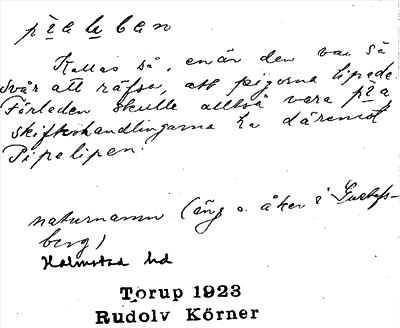 pīa la ban
Kallas så, enär den var så
svår att räfsa, att pigorna lipade
Förleden skulle alltså vara pīa
skifteshandlingarna ha däremot
Pipelipen.
naturnamn (äng o. åker i Gustafs-
berg)
Halmstad hd
Torup 1923
Rudolv Körner